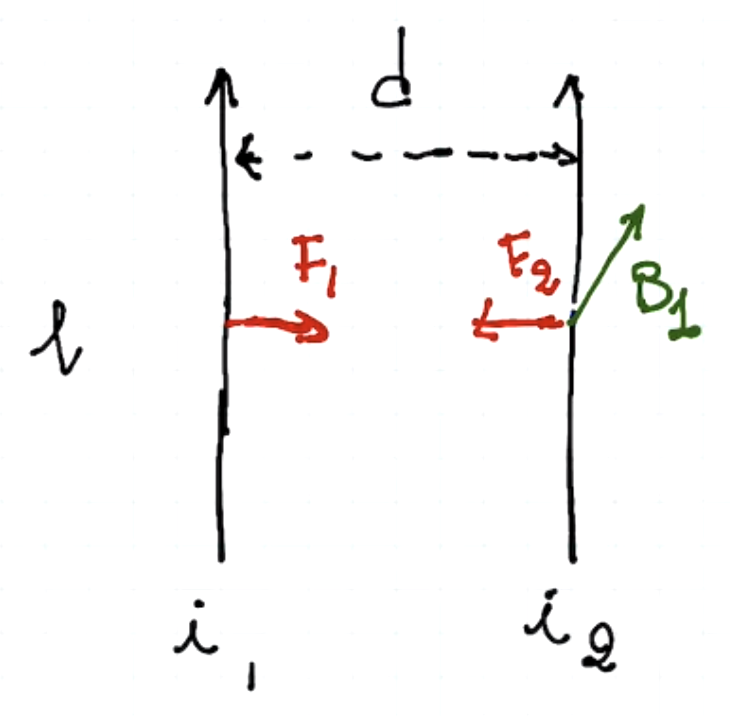 d
F₁
F₂
B₁
l
i₁
i₂